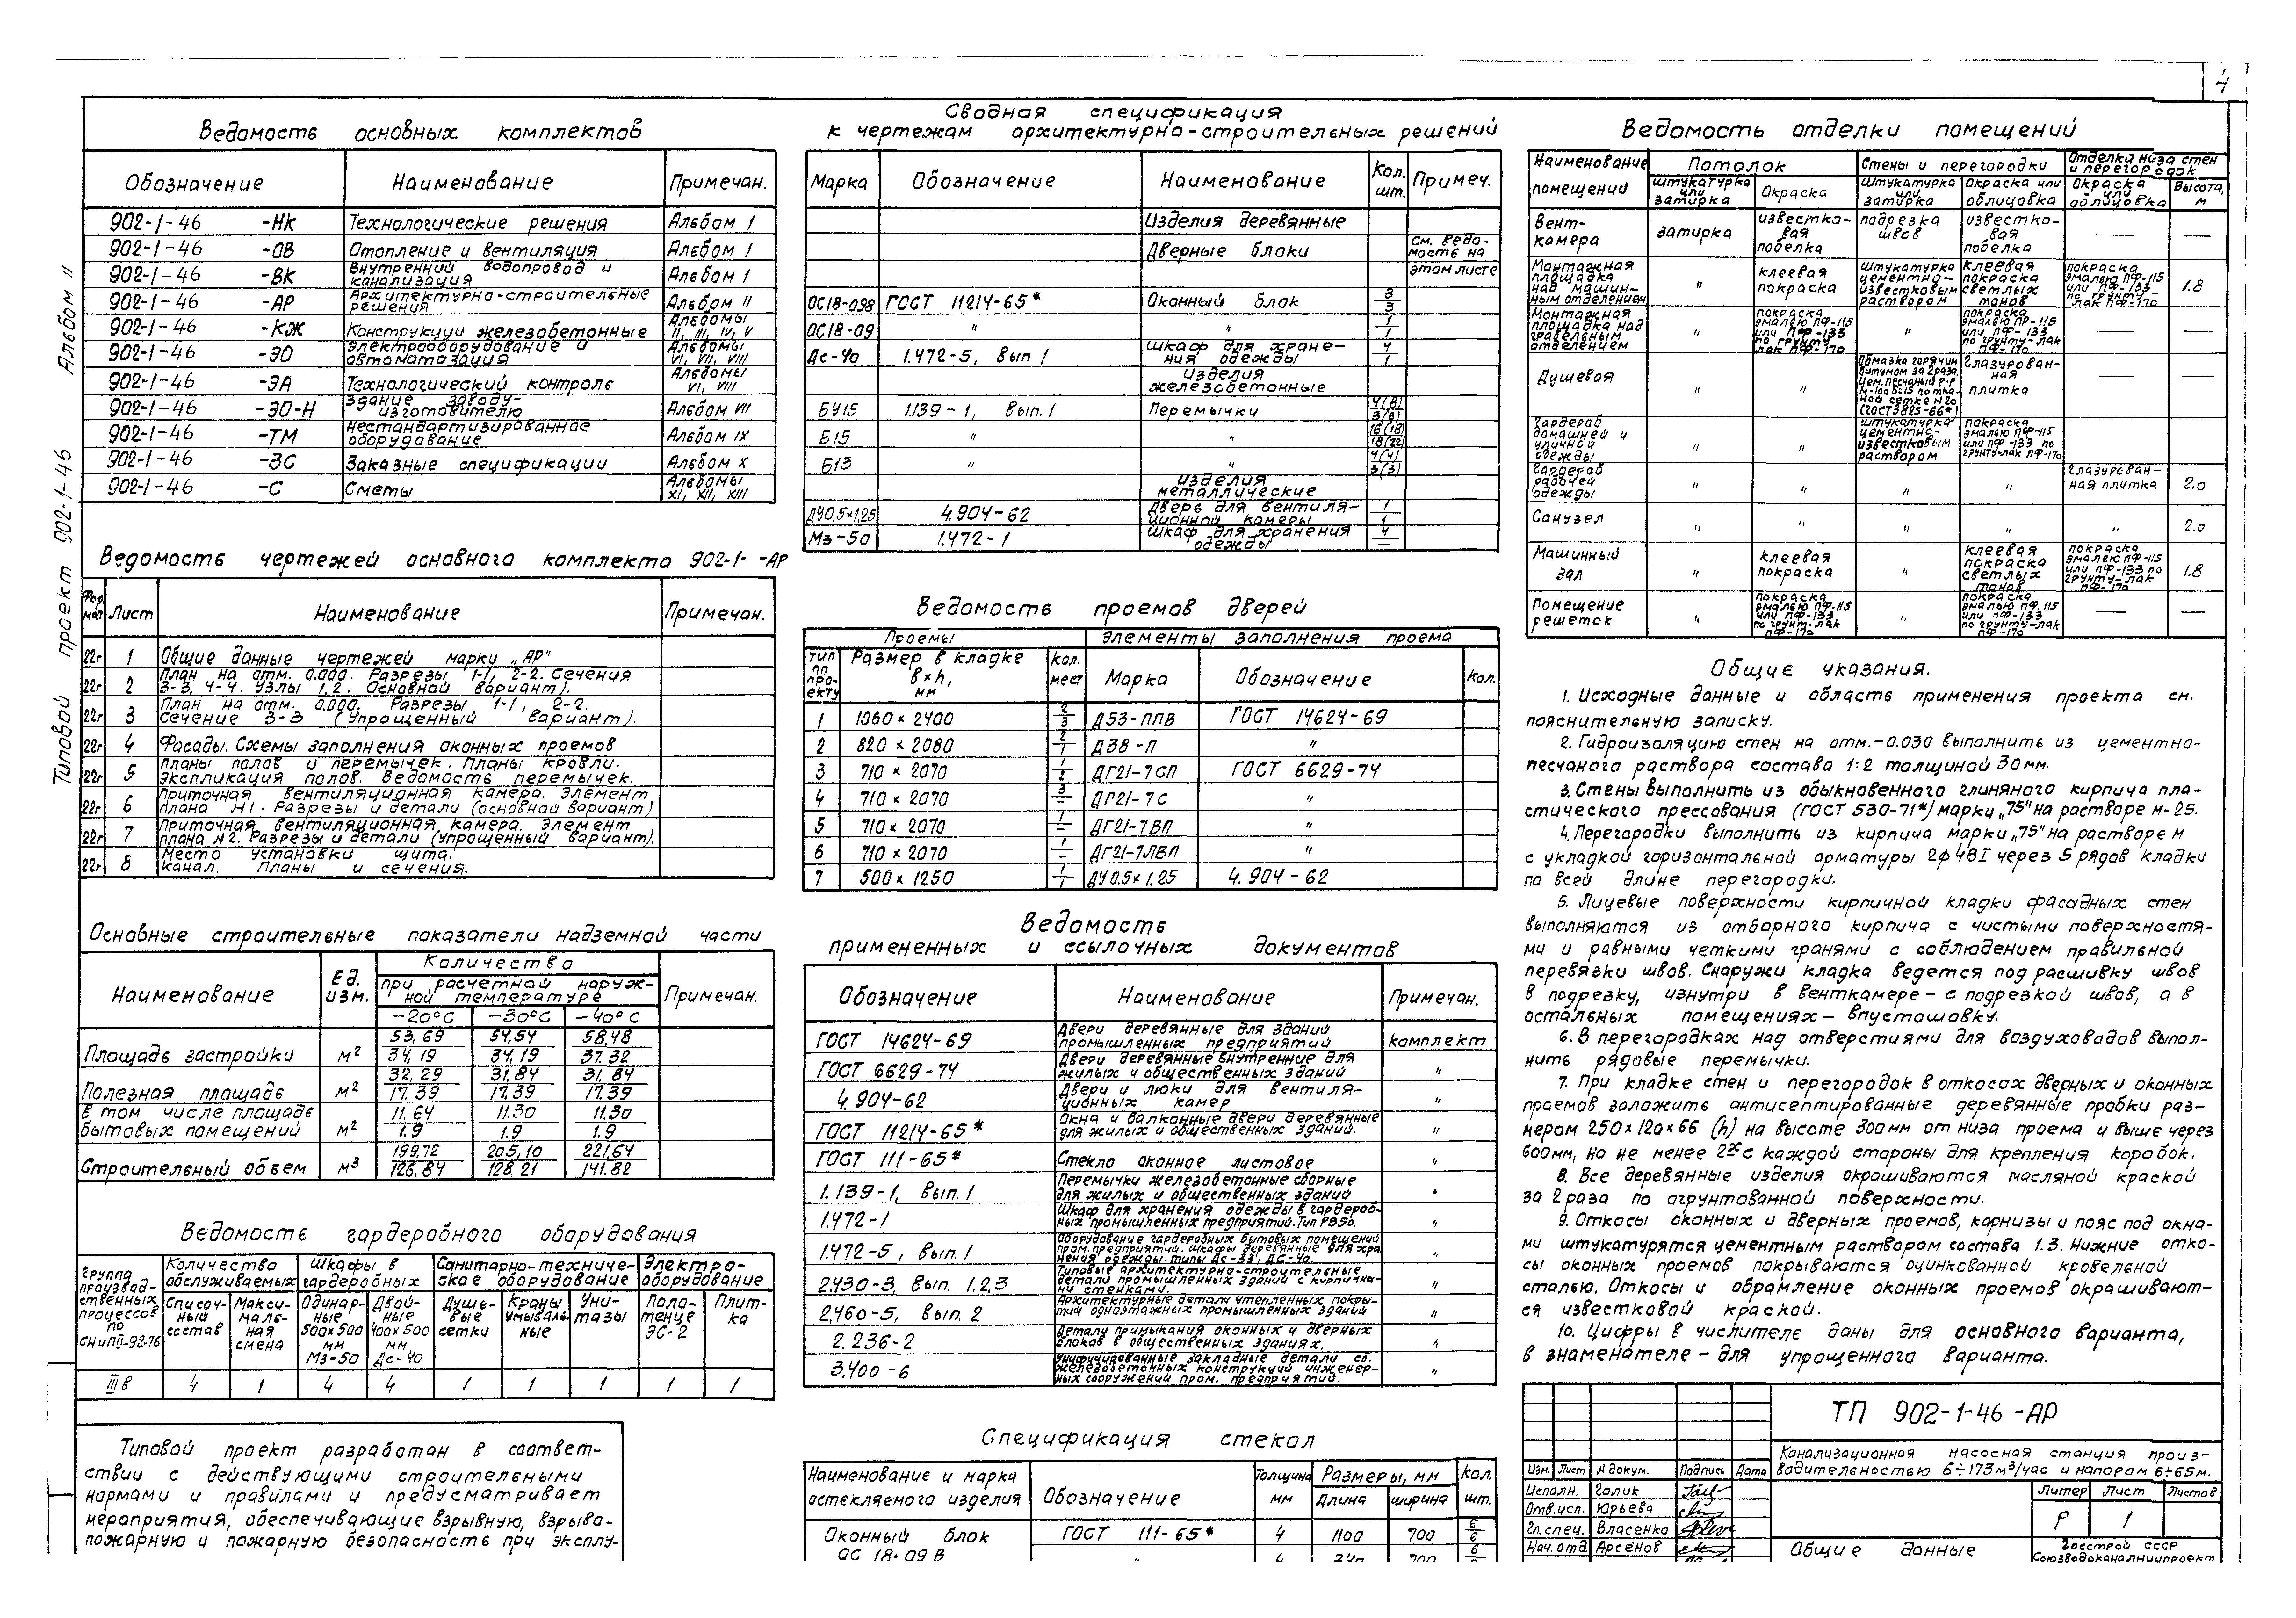 4
Альбом II
Типовой проект 902-1-46
Ведомость основных комплектов
Обозначение Наименование Примечан.
902-1-46 -НК Технологические решения Альбом I
902-1-46 -ОВ Отопление и вентиляция Альбом I
902-1-46 -ВК Внутренний водопровод и канализация Альбом I
902-1-46 -АР Архитектурно-строительные решения Альбом II
902-1-46 -КЖ Конструкции железобетонные Альбомы II, III, IV, V
902-1-46 -ЭО Электрооборудование и автоматизация Альбомы VI, VII, VIII
902-1-46 -ЭА Технологический контроль Альбомы VI, VIII
902-1-46 -ЭО-Н Здание заводу-изготовителю Альбом VII
902-1-46 -ТМ Нестандартизированное оборудование Альбом IX
902-1-46 -ЗС Заказные спецификации Альбом X
902-1-46 -С Сметы Альбомы XI, XII, XIII
Ведомость чертежей основного комплекта 902-1- -АР
Формат Лист Наименование Примечан.
22г 1 Общие данные чертежей марки „АР"
22г 2 План на отм. 0.000. Разрезы 1-1, 2-2. Сечения
3-3, 4-4. Узлы 1,2. Основной вариант).
22г 3 План на отм. 0.000. Разрезы 1-1, 2-2.
Сечение 3-3 (Упрощенный вариант).
22г 4 Фасады. Схемы заполнения оконных проемов
22г 5 Планы полов и перемычек. Планы кровли.
Экспликация полов. Ведомость перемычек.
22г 6 Приточная вентиляционная камера. Элемент
плана №1. Разрезы и детали (основной вариант)
22г 7 Приточная вентиляционная камера. Элемент
плана №2. Разрезы и детали (упрощенный вариант).
22г 8 Место установки щита.
Канал. Планы и сечения.
Основные строительные показатели надземной части
Наименование Ед. изм. Количество Примечан.
при расчетной наруж-
ной температуре
-20°С -30°С -40°С
53,69 54,54 58,48
Площадь застройки м2 34,19 34,19 37.32
32,29 31.84 31,84
Полезная площадь м2 17.39 17.39 17.39
В том числе площадь 11.64 11.30 11.30
бытовых помещений м2 1.9 1.9 1.9
199,72 205,10 221,64
Строительный объем м3 126,84 128,21 141.82
Ведомость гардеробного оборудования
Группа производ-
ственных процессов по СНиПII-92-76
Количество обслуживаемых
Шкафы в гардеробных
Санитарно-техниче-
ское оборудование
Электро-
оборудование
Списоч-
ный состав
Макси-
маль-
ная смена
Одинар-
ные 500×500 мм МЗ-50
Двой-
ные 400×500 мм Дс-40
Душе-
вые сетки
Краны умываль-
ные
Уни-
тазы
Поло-
тенце ЭС-2
Плит-
ка
IIIв 4 1 4 4 1 1 1 1 1
Типовой проект разработан в соответ-
ствии с действующими строительными
нормами и правилами и предусматривает
мероприятия, обеспечивающие взрывную, взрыво-
пожарную и пожарную безопасность при эксплу-
Сводная спецификация
к чертежам архитектурно-строительных решений
Марка Обозначение Наименование Кол. шт. Примеч.
Изделия деревянные
Дверные блоки См. ведо-
мость на
этом листе
ОС18-09В ГОСТ 11214-65* Оконный блок 3/3
ОС18-09 " 1/1
Дс-40 1.472-5, Вып 1 Шкаф для хране-
ния одежды 4/1
Изделия
железобетонные
БУ15 1.139-1, Вып.1 Перемычки 4(8)/3(6)
Б15 " " 16(18)/18(22)
Б13 " " 4(4)/3(3)
Изделия
металлические
ДУ0,5×1,25 4.904-62 Дверь для вентиля-
ционной камеры 1/1
МЗ-50 1.472-1 Шкаф для хранения
одежды 4/-
Ведомость проемов дверей
Проемы Элементы заполнения проема
Тип по про-
екту Размер в кладке b×h, мм Кол. мест Марка Обозначение Кол.
1 1060×2400 2/3 Д53-ППВ ГОСТ 14624-69
2 820×2080 2/1 Д38-П "
3 710×2070 1/2 ДГ21-7СП ГОСТ 6629-74
4 710×2070 3/- ДГ21-7С "
5 710×2070 1/- ДГ21-7ВП "
6 710×2070 1/- ДГ21-7ЛВП "
7 500×1250 1/1 ДУ0.5×1,25 4.904-62
Ведомость
примененных и ссылочных документов
Обозначение Наименование Примечан.
ГОСТ 14624-69 Двери деревянные для зданий
промышленных предприятий комплект
ГОСТ 6629-74 Двери деревянные внутренние для
жилых и общественных зданий "
4.904-62 Двери и люки для вентиля-
ционных камер "
ГОСТ 11214-65* Окна и балконные двери деревянные
для жилых и общественных зданий. "
ГОСТ 111-65* Стекло оконное листовое "
1.139-1, Вып.1 Перемычки железобетонные сборные
для жилых и общественных зданий "
1.472-1 Шкаф для хранения одежды в гардероб-
ных промышленных предприятий. Тип РВ50. "
1.472-5, Вып.1 Оборудование гардеробных бытовых помещений
пром. предприятий. Шкафы деревянные для хра-
нения одежды. типы Дс-33, ДС-40. "
2.430-3, Вып. 1.2,3 Типовые архитектурно-строительные
детали промышленных зданий с кирпичны-
ми стенками. "
2,460-5, Вып. 2 Архитектурные детали утепленных покры-
тий одноэтажных промышленных зданий "
2.236-2 Детали примыкания оконных и дверных
блоков в общественных зданиях. "
3.400-6 Унифицированные закладные детали сб.
железобетонных конструкций инженер-
ных сооружений пром. предприятий. "
Спецификация стекол
Наименование и марка
остекляемого изделия Обозначение Толщина мм Размеры, мм Кол. шт.
Длина ширина
Оконный блок ГОСТ 111-65* 4 1100 700 6/6
ОС 18-09В " 4 700 6
Ведомость отделки помещений
Наименование помещений Потолок Стены и перегородки Отделка низа стен
и перегородок
Штукатурка или затирка Окраска Штукатурка или затирка Окраска или облицовка Окраска или облицовка Высота, м
Вент-
камера затирка известко-
вая побелка подрезка швов известко-
вая побелка — —
Монтажная площадка над машин-
ным отделением " клеевая покраска Штукатурка цементно-
известковым раствором клеевая покраска светлых тонов покраска эмалью ПФ-115 или ПФ-133 по грунту-лак ПФ-170 1.8
Монтажная площадка над грабельным отделением " покраска эмалью ПФ-115 или ПФ-133 по грунту лак ПФ-170 " покраска эмалью ПФ-115 или ПФ-133 по грунту-лак ПФ-170 — —
Душевая " " Обмазка горячим битумом за 2 раза. Цем.песчаный р-р М-100 б=15 по тка-
ной сетке N20 (ГОСТ3825-66*) Глазурован-
ная плитка
Гардероб домашней и уличной одежды " " Штукатурка цементно-
известковым раствором покраска эмалью ПФ-115 или ПФ-133 по грунту-лак ПФ-170
Гардероб рабочей одежды " " " " Глазурован-
ная плитка 2.0
Санузел " " " " " 2.0
Машинный зал " клеевая покраска " клеевая покраска светлых тонов покраска эмалью ПФ-115 или ПФ-133 по грунту-лак ПФ-170 1.8
Помещение решеток " покраска эмалью ПФ-115 или ПФ-133 по грунт-лак ПФ-170 " покраска эмалью ПФ.115 или ПФ-133 по грунту-лак ПФ-170 — —
Общие указания.
1. Исходные данные и область применения проекта см.
пояснительную записку.
2. Гидроизоляцию стен на отм.-0.030 выполнить из цементно-
песчаного раствора состава 1:2 толщиной 30мм.
3. Стены выполнить из обыкновенного глиняного кирпича пла-
стического прессования (ГОСТ 530-71*) марки „75" на растворе м-25.
4. Перегородки выполнить из кирпича марки „75" на растворе м
с укладкой горизонтальной арматуры 2ф4ВI через 5 рядов кладки
по всей длине перегородки.
5. Лицевые поверхности кирпичной кладки фасадных стен
выполняются из отборного кирпича с чистыми поверхностя-
ми и равными четкими гранями с соблюдением правильной
перевязки швов. Снаружи кладка ведется под расшивку швов
в подрезку, изнутри в венткамере - с подрезкой швов, а в
остальных помещениях - впустошовку.
6. В перегородках над отверстиями для воздуховодов выпол-
нить рядовые перемычки.
7. При кладке стен и перегородок в откосах дверных и оконных
проемов заложить антисептированные деревянные пробки раз-
мером 250×120×66 (h) на высоте 300мм от низа проема и выше через
600мм, но не менее 2х с каждой стороны для крепления коробок.
8. Все деревянные изделия окрашиваются масляной краской
за 2 раза по огрунтованной поверхности.
9. Откосы оконных и дверных проемов, карнизы и пояс под окна-
ми штукатурятся цементным раствором состава 1:3. Нижние отко-
сы оконных проемов покрываются оцинкованной кровельной
сталью. Откосы и обрамление оконных проемов окрашивают-
ся известковой краской.
10. Цифры в числителе даны для основного варианта,
в знаменателе - для упрощенного варианта.
ТП 902-1-46 -АР
Канализационная насосная станция произ-
водительностью 6÷173м3/час и напором 6÷65м.
Изм. Лист N докум. Подпись Дата
Исполн. Голик
Отв.исп. Юрьева
Гл.спец. Власенко
Нач. отд Арсенов
Литер Лист Листов
Р 1
Общие данные
Госстрой СССР
Союзводоканалниипроект